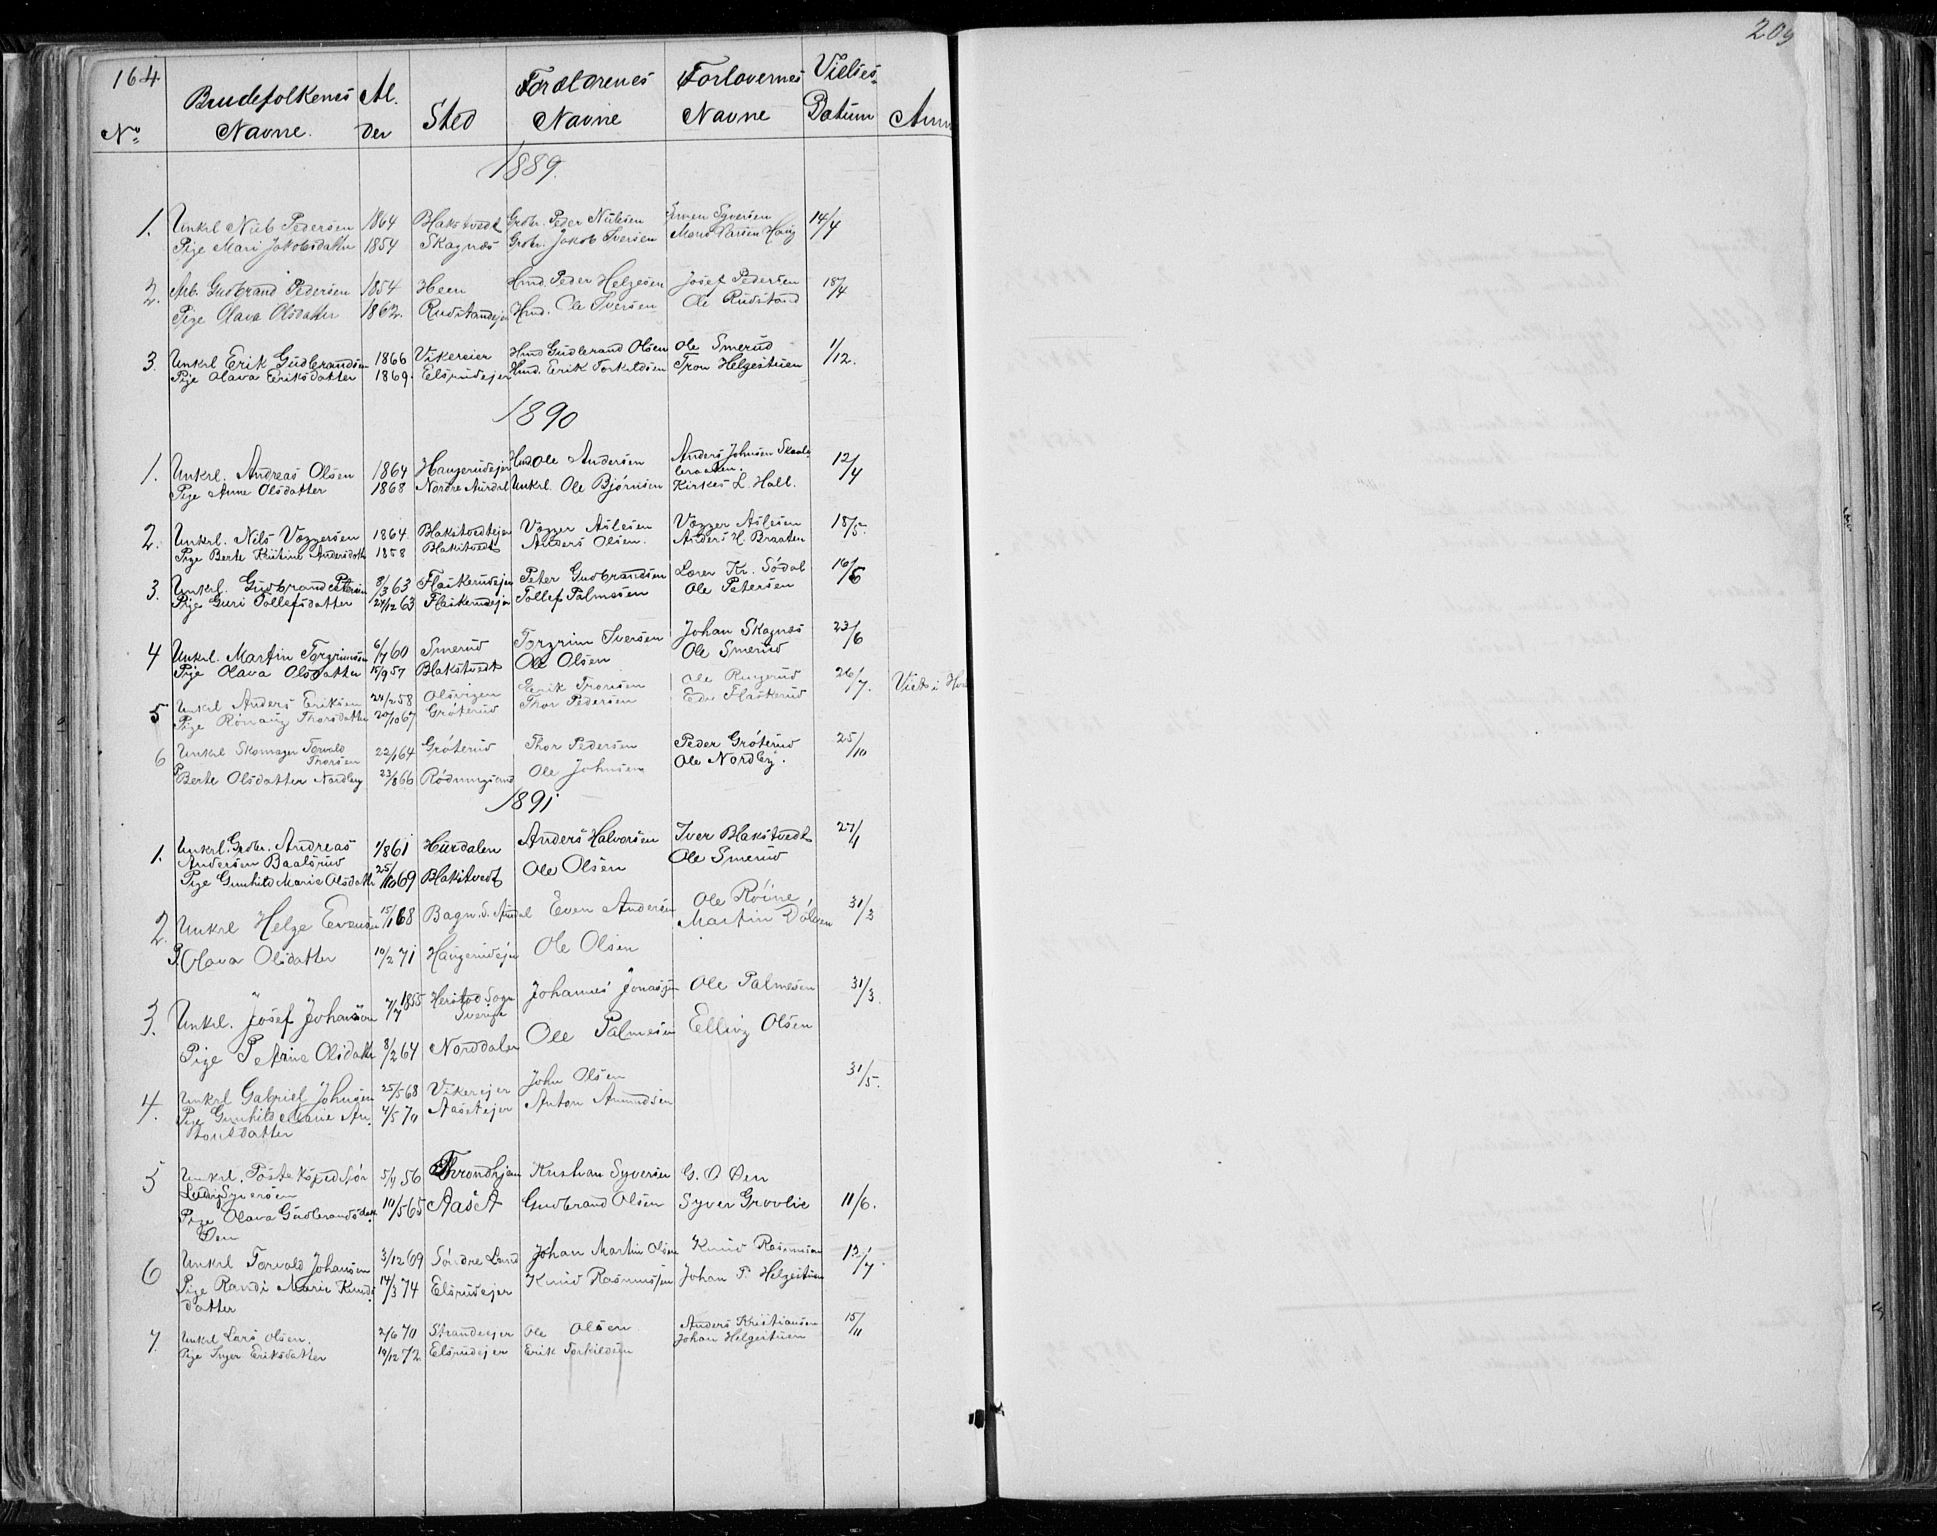 164
209
No Brudefolkenes Navne. Alder Sted Forældrenes Navne Forlovernes Navne Vielses Datum Anm
1889.
1. Unkrl Nils Pedersen 1864 Blakstvedt Grdbr. Peder Nielsen Simen Syversen 14/4
Pige Mari Jakobsdatter 1854 Skagnæs Grdbr. Jakob Iversen Larsen Haug
2. Arb. Gudbrand Pedersen 1854 Heen Hmd. Peder Helgesen Josef Pedersen 18/4
Pige Olava Olsdatter 1862. Rudstandejer Hmd. Ole Iversen Ole Rudstand
3. Unkrl Erik Gudbrandsen 1866 Vikereier Hmd Gudbrand Olsen Ole Smerud 1/12.
Pige Olava Eriksdatter 1869. Elsrudejer Hmd. Erik Torkildsen Tron Helgestuen
1890
1. Unkrl. Andreas Olsen 1864 Haugerudejer Hmd Ole Andersen Anders Johnsen Skaals 12/4
braaten.
Pige Anne Olsdatter 1868 Nordre Aurdal Unkrl. Ole Bjørnsen Kirkes. L. Hall.
2. Unkrl. Nils Vøggersen 1864. Blakstvedtejer Vøgger Aslesen Vøgger Aslesen 18/5-
Pige Berte Kristine Andersdatter 1858 Blakstvedt Anders Olsen. Anders H. Braaten
3. Unkrl. Gudbrand Petersen 8/3 63 Flaskerudejer Peter Gudbrandsen Lærer Kr. Sødal 16/6
Pige Guri Tollefsdatter 24/12 63 Flaskerudejer Tollef Palmesen Ole Petersen
4 Unkrl. Martin Torgrimsen 6/7 60 Smerud Torgrim Iversen Johan Skagnæs 23/6
Pige Olava Olsdatter 15/9 57 Blakstvedt Ole Olsen Ole Smerud
5 Unkrl Anders Eriksen 24/2 58 Olsvigen Erik Tronsen Ole Ringerud 26/7. Viet i
Pige Rønaug Thorsdatter 20/10 67 Grøterud Thor Pedersen Edv Flaskerud
6 Unkrl Skomager Torvald Thorsen 22/1 64 Grøterud Thor Pedersen Peder Grøterud 25/10
P Berte Olsdatter Nordby 23/8 66 Rødningsand Ole Johnsen Ole Nordby.
1891
1. Unkrl. Grdbr. Andreas 1/8 61 Hurdalen Anders Halvorsen Iver Blakstvedt 27/1
Andersen Baalsrud Ole Smerud
Pige Gunhild Marie Olsdatter 25/10 69 Blakstvedt Ole Olsen
2. Unkrl Helge Evensen 15/1 68 Bagn. S. Aurdal Even Andersen Ole Røine 31/3
Martin Dølven
P. Olava Olsdatter 10/2 71 Haugerudejer Ole Olsen
3. Unkrl. Josef Johanson 7/7 1855 Herstad Sogn Johannes Jonasson Ole Palmesen 31/3.
Sverige
Pige Petrine Olsdatter 8/2 64 Norddalen Ole Palmesen Elling Olsen
4. Unkrl Gabriel Johnsen 25/5 68 Vikerejer John Olsen 31/5.
Pige Gunhild Marie An- 4/5 70 Aasetejer Anton Amundsen
tonsdatter
5 Unkrl. Postekspeditør 5/7 56 Throndhjem Kristian Syversen G. O Øen
Ludvig Syversen
Pige Olava Gudbrandsdatter 10/5 65 Aaset Gudbrand Olsen Syver Groolie 11/6.
Øen
6 Unkrl Torvald Johansen 3/12 69 Søndre Land Johan Martin Olsen Knud Rasmussen 12/7.
Pige Randi Marie Knuds 14/3 74 Elsrudejer Knud Rasmussen Johan P. Helgestuen
datter
7. Unkrl Lars Olsen. 2/6 70 Strandeejer Ole Olsen Anders Kristiansen 15/11
Pige Inger Eriksdatter 19/12 72 Elsrudejer Erik Torkildsen Johan Helgestuen